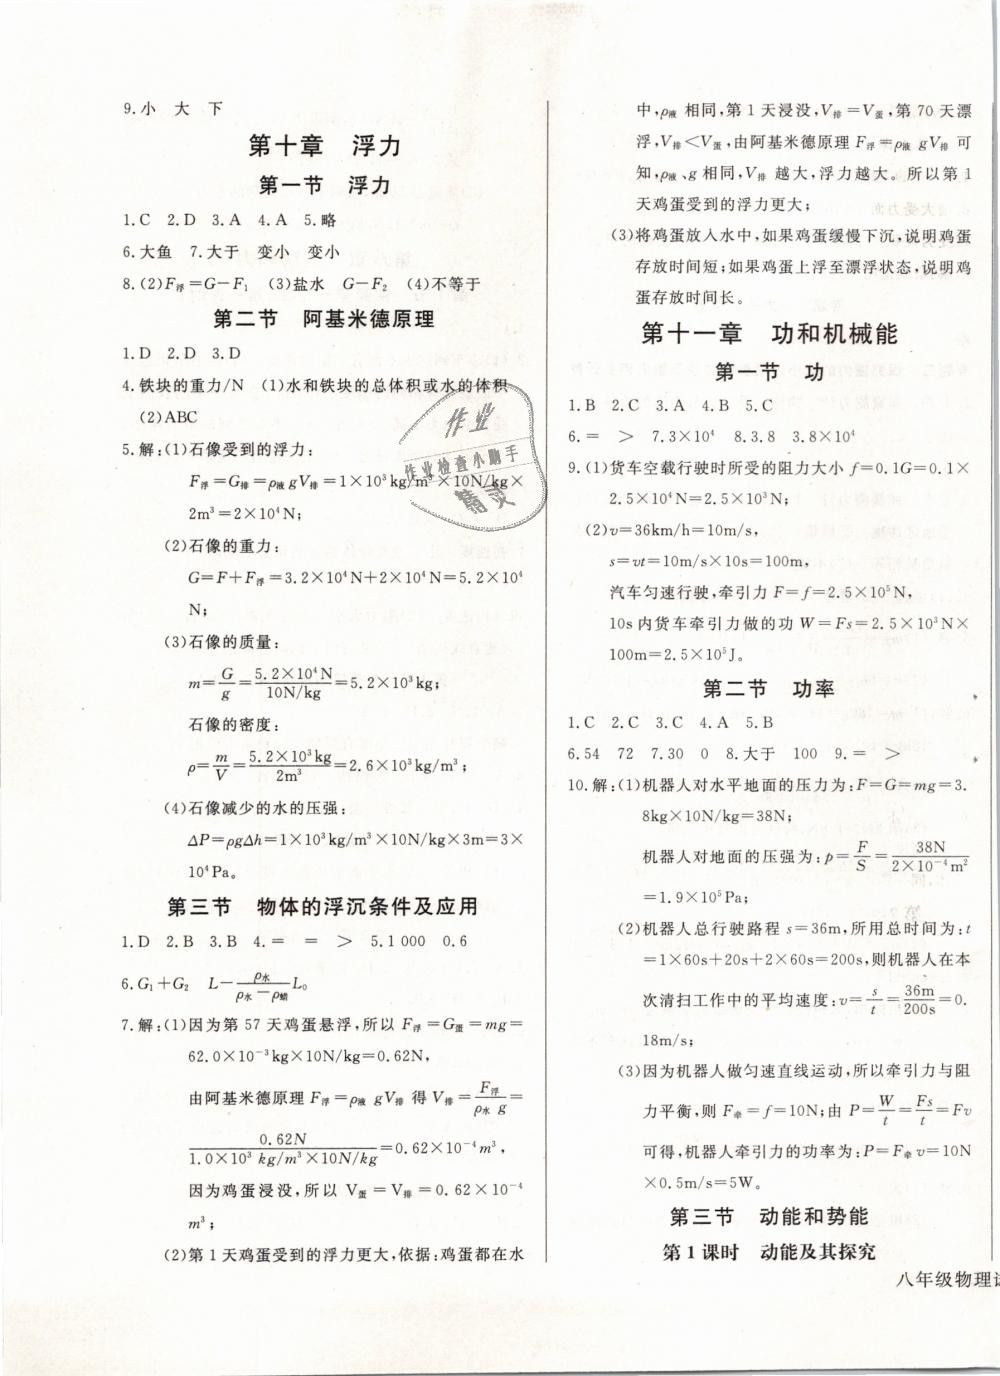 9.小　大　下
第十章　浮力
第一节　浮力
1.C　2.D　3.A　4.A　5.略
6.大鱼　7.大于　变小　变小
8.(2)F浮=G-F₁　(3)盐水　G-F₂　(4)不等于
第二节　阿基米德原理
1.D　2.D　3.D
4.铁块的重力/N　(1)水和铁块的总体积或水的体积
(2)ABC
5.解:(1)石像受到的浮力:
F浮=G排=ρ液gV排=1×10³kg/m³×10N/kg×
2m³=2×10⁴N;
(2)石像的重力:
G=F+F浮=3.2×10⁴N+2×10⁴N=5.2×10⁴
N;
(3)石像的质量:
m=G/g=5.2×10⁴N/10N/kg=5.2×10³kg;
石像的密度:
ρ=m/V=5.2×10³kg/2m³=2.6×10³kg/m³;
(4)石像减少的水的压强:
ΔP=ρgΔh=1×10³kg/m³×10N/kg×3m=3×
10⁴Pa。
第三节　物体的浮沉条件及应用
1.D　2.B　3.B　4.=　=　>　5.1 000　0.6
6.G₁+G₂　L-ρ水/(ρ水-ρ蜡)L₀
7.解:(1)因为第 57 天鸡蛋悬浮,所以 F浮=G蛋=mg=
62.0×10⁻³kg×10N/kg=0.62N,
由阿基米德原理 F浮=ρ液gV排 得 V排=F浮/(ρ水g)=
0.62N/(1.0×10³kg/m³×10N/kg)=0.62×10⁻⁴m³,
因为鸡蛋浸没,所以 V蛋=V排=0.62×10⁻⁴
m³;
(2)第 1 天鸡蛋受到的浮力更大,依据:鸡蛋都在水
中,ρ液 相同,第 1 天浸没,V排=V蛋,第 70 天漂
浮,V排<V蛋,由阿基米德原理 F浮=ρ液gV排 可
知,ρ液、g相同,V排 越大,浮力越大。所以第 1
天鸡蛋受到的浮力更大;
(3)将鸡蛋放入水中,如果鸡蛋缓慢下沉,说明鸡蛋
存放时间短;如果鸡蛋上浮至漂浮状态,说明鸡
蛋存放时间长。
第十一章　功和机械能
第一节　功
1.B　2.C　3.A　4.B　5.C
6.=　>　7.3×10⁴　8.3.8　3.8×10⁴
9.(1)货车空载行驶时所受的阻力大小 f=0.1G=0.1×
2.5×10⁴N=2.5×10³N;
(2)v=36km/h=10m/s,
s=vt=10m/s×10s=100m,
汽车匀速行驶,牵引力 F=f=2.5×10⁵N,
10s内货车牵引力做的功 W=Fs=2.5×10³N×
100m=2.5×10⁵J。
第二节　功率
1.C　2.C　3.C　4.A　5.B
6.54　72　7.30　0　8.大于　100　9.=　>
10.解:(1)机器人对水平地面的压力为:F=G=mg=3.
8kg×10N/kg=38N;
机器人对地面的压强为:p=F/S=38N/2×10⁻⁴m²
=1.9×10⁵Pa;
(2)机器人总行驶路程 s=36m,所用总时间为:t
=1×60s+20s+2×60s=200s,则机器人在本
次清扫工作中的平均速度:v=s/t=36m/200s=0.
18m/s;
(3)因为机器人做匀速直线运动,所以牵引力与阻
力平衡,则 F牵=f=10N;由 P=W/t=Fs/t=Fv
可得,机器人牵引力的功率为:P=F牵v=10N
×0.5m/s=5W。
第三节　动能和势能
第 1 课时　动能及其探究
八年级物理
作业
作业检查小助手
精灵